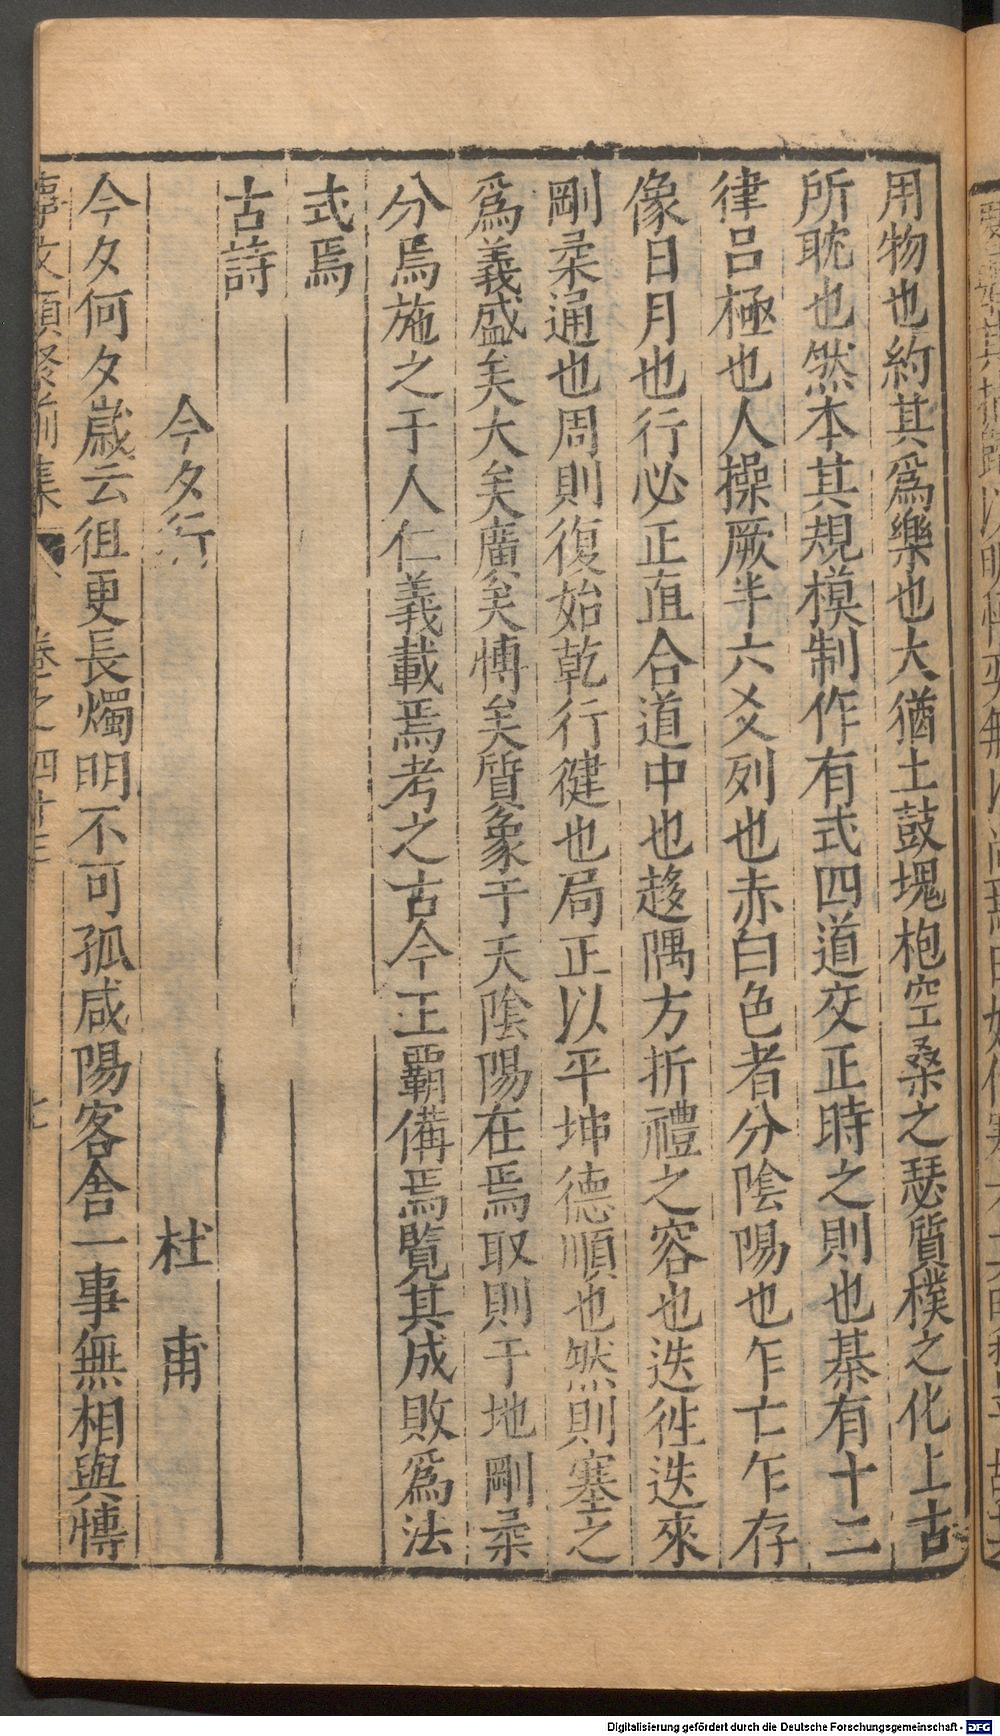 用物也約其爲樂也大猶土鼓塊枹空桑之瑟質樸之化上古
所耽也然本其規模制作有式四道交正時之則也棊有十二
律呂極也人操厥半六爻列也赤白色者分隂陽也乍亡乍存
像日月也行必正直合道中也趍隅方折禮之容也迭徃迭來
剛柔通也周則復始乾行健也局正以平坤德順也然則塞之
爲義盛矣大矣廣矣愽矣質象于天隂陽在焉取則于地剛柔
分焉施之于人仁義載焉考之古今王覇備焉覽其成敗爲法
式焉
古詩
今夕行 杜甫
今夕何夕歳云徂更長燭明不可孤咸陽客舎一事無相與愽
事文類聚前集 卷之四十三 七
Digitalisierung gefördert durch die Deutsche Forschungsgemeinschaft - DFG